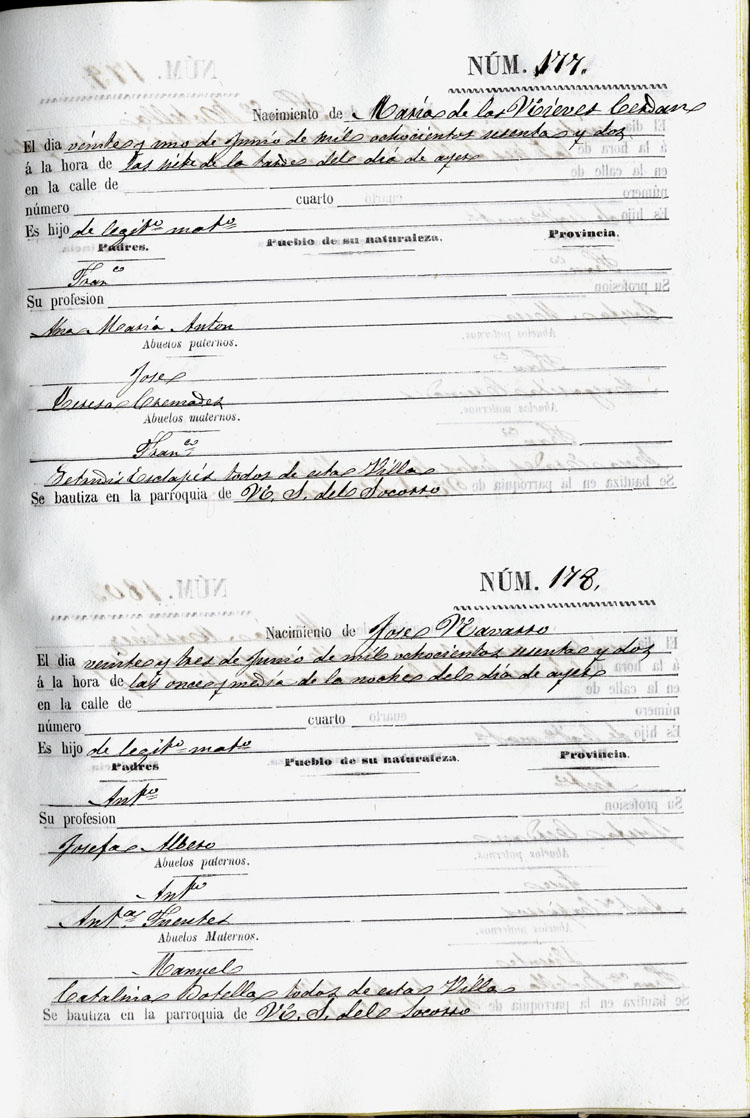 NÚM. 177.
Nacimiento de María de las Nieves Cerdan
El dia veinte y uno de Junio de mil ochocientos sesenta y dos
á la hora de las siete de la tarde del día de ayer
en la calle de
número cuarto
Es hijo de legit.º mat.º
Padres. Pueblo de su naturaleza. Provincia.
Fran.co
Su profesion
Ana María Anton
Abuelos paternos.
Jose
Teresa Cremades
Abuelos maternos.
Fran.co
Esclapés todos de esta Villa
Se bautiza en la parroquia de N. S. del Socorro
NÚM. 178.
Nacimiento de Jose Navarro
El dia veinte y tres de Junio de mil ochocientos sesenta y dos
á la hora de las once y media de la noche del día de ayer
en la calle de
número cuarto
Es hijo de legit.º mat.º
Padres Pueblo de su naturaleza. Provincia.
Ant.º
Su profesion
Josefa Albero
Abuelos paternos.
Ant.º
Ant.a Fuentes
Abuelos Maternos.
Manuel
Catalina Botella todos de esta Villa
Se bautiza en la parroquia de N. S. del Socorro